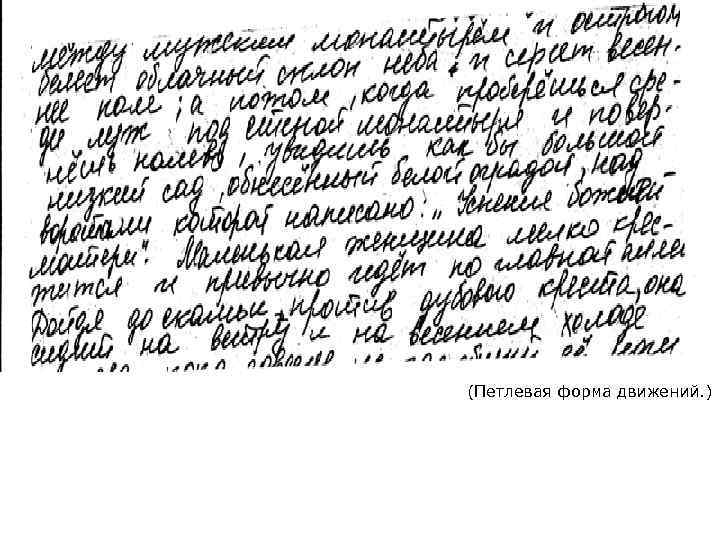 между мужским монастырём и острогом
белеет облачный склон неба и сереет весен-
нее поле; а потом, когда проберёшься сре-
ди луж под стеной монастыря и повер-
нёшь налево, увидишь как бы большой
низкий сад, обнесённый белой оградой, над
воротами которой написано: „Успение божией
матери". Маленькая женщина мелко крес-
тится и привычно идёт по главной аллее
Дойдя до скамьи против дубового креста, она
сидит на ветру и на весеннем холоде
(Петлевая форма движений.)